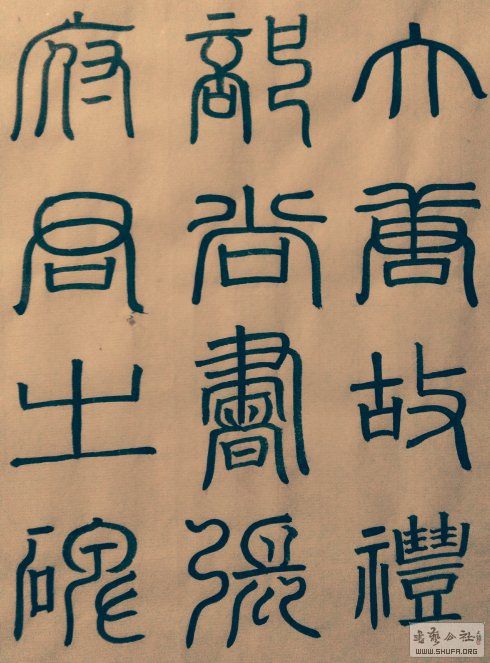 大唐故禮
部尚書張
府君之碑
書藝公社
WWW.SHUFA.ORG